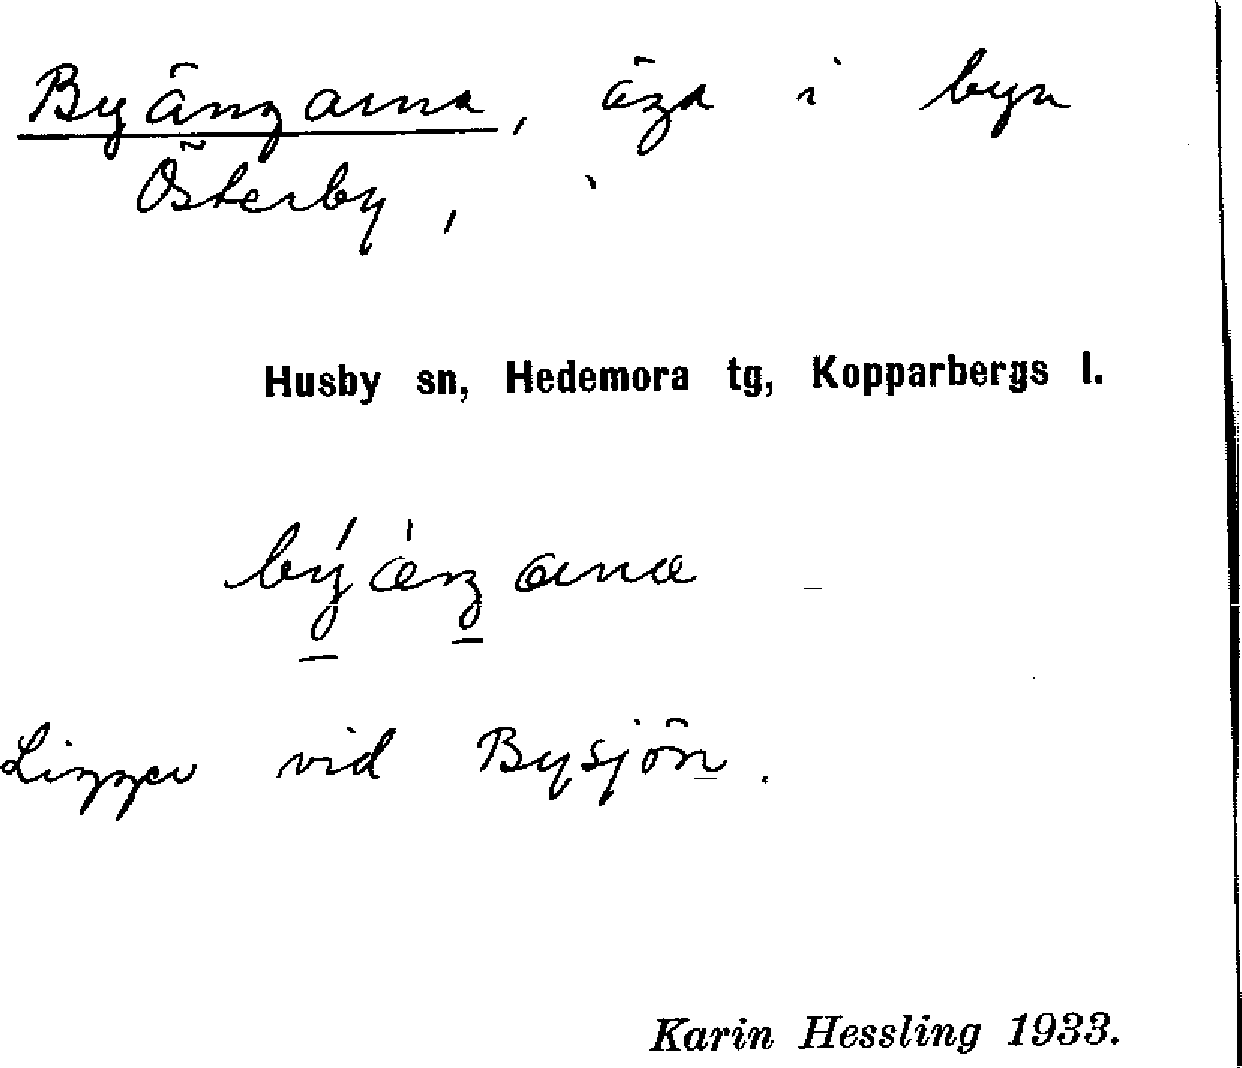 Byängarna, äga i byn
Österby,
Husby sn, Hedemora tg, Kopparbergs l.
Ligger vid Bysjön.
Karin Hessling 1933.